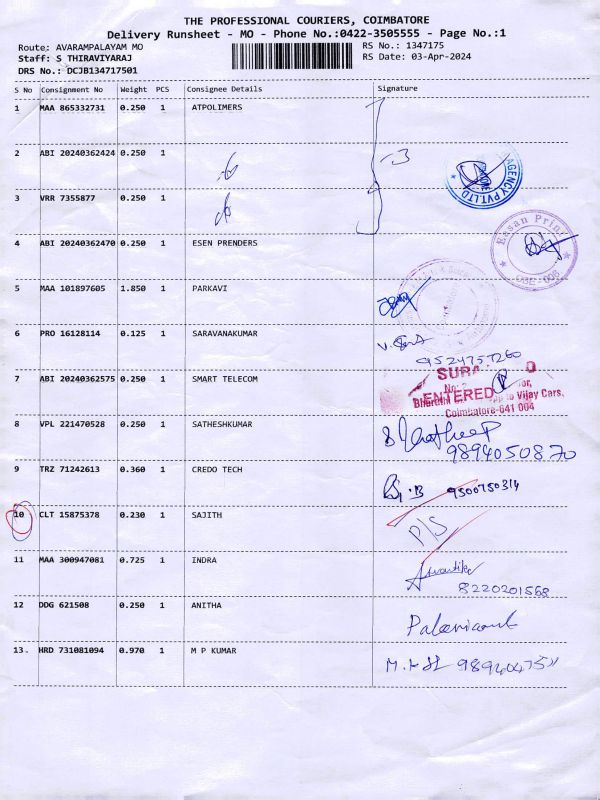 THE PROFESSIONAL COURIERS, COIMBATORE
Delivery Runsheet - MO - Phone No.:0422-3505555 - Page No.:1
Route: AVARAMPALAYAM MO
RS No.: 1347175
Staff: S THIRAVIYARAJ
RS Date: 03-Apr-2024
DRS No.: DCJB134717501
S No Consignment No Weight PCS Consignee Details Signature
1 MAA 865332731 0.250 1 ATPOLIMERS
2 ABI 20240362424 0.250 1
3
AGENCY PVT.LTD
3 VRR 7355877 0.250 1
4 ABI 20240362470 0.250 1 ESEN PRENDERS
Essan Prin
CBE-006
5 MAA 101897605 1.850 1 PARKAVI
6 PRO 16128114 0.125 1 SARAVANAKUMAR
9524757260
7 ABI 20240362575 0.250 1 SMART TELECOM
ENTERED
to Vijay Cars,
Coimbatore-641 004
8 VPL 221470528 0.250 1 SATHESHKUMAR
9894050870
9 TRZ 71242613 0.360 1 CREDO TECH
9500750314
10 CLT 15875378 0.230 1 SAJITH
P/S
11 MAA 300947081 0.725 1 INDRA
8220201568
12 DDG 621508 0.250 1 ANITHA
13. HRD 731081094 0.970 1 M P KUMAR